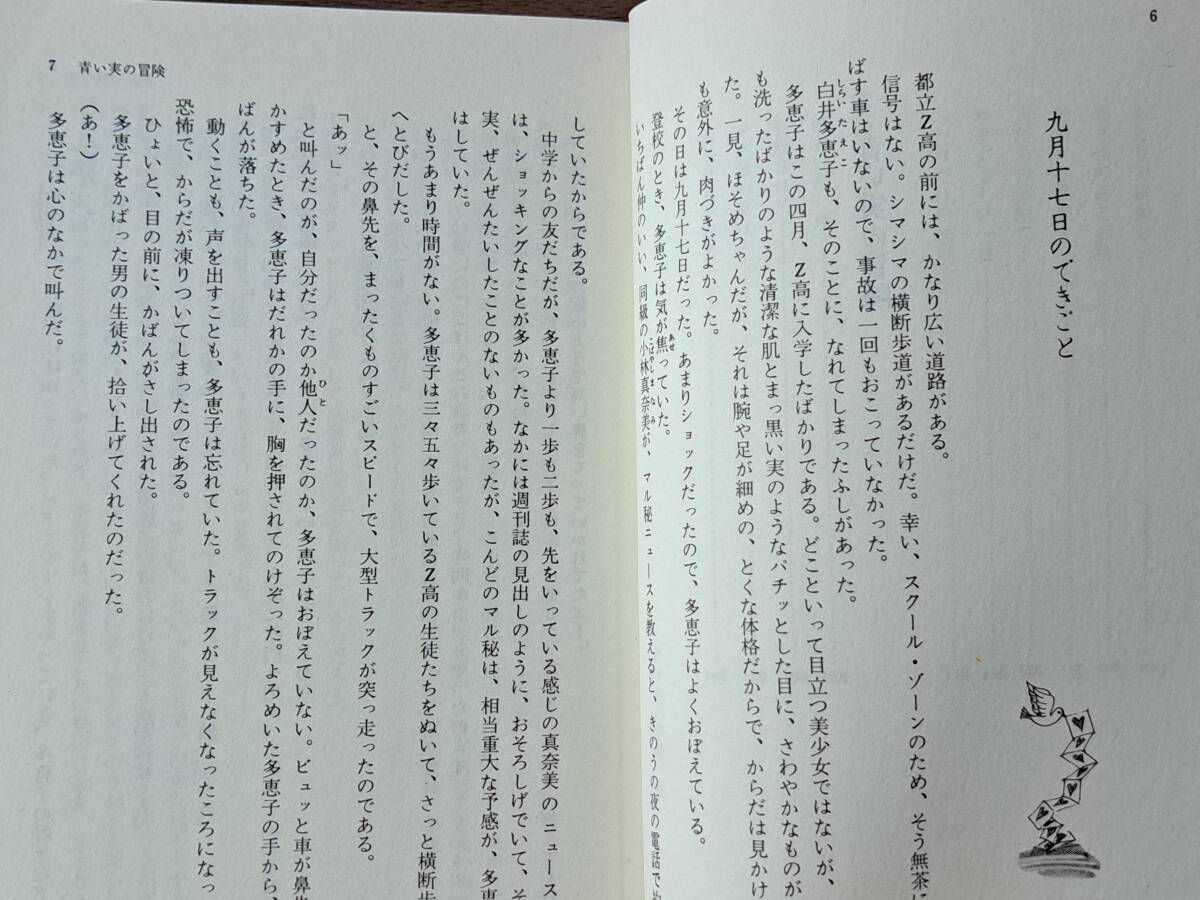 6
九月十七日のできごと
都立Z高の前には、かなり広い道路がある。
信号はない。シマシマの横断歩道があるだけだ。幸い、スクール・ゾーンのため、そう無茶に
ばす車はいないので、事故は一回もおこっていなかった。
白井多恵子も、そのことに、なれてしまったふしがあった。
しらいたえこ
多恵子はこの四月、Z高に入学したばかりである。どこといって目立つ美少女ではないが、
も洗ったばかりのような清潔な肌とまっ黒い実のようなパチッとした目に、さわやかなものが
た。一見、ほそめちゃんだが、それは腕や足が細めの、とくな体格だからで、からだは見かけ
も意外に、肉づきがよかった。
その日は九月十七日だった。あまりショックだったので、多恵子はよくおぼえている。
登校のとき、多恵子は気が焦っていた。
あせ
いちばん仲のいい、同級の小林真奈美が、マル秘ニュースを教えると、きのうの夜の電話で
こばやしまなみ
7 青い実の冒険
していたからである。
中学からの友だちだが、多恵子より一歩も二歩も、先をいっている感じの真奈美のニュース
は、ショッキングなことが多かった。なかには週刊誌の見出しのように、おそろしげでいて、そ
実、ぜんぜんたいしたことのないものもあったが、こんどのマル秘は、相当重大な予感が、多
はしていた。
もうあまり時間がない。多恵子は三々五々歩いているZ高の生徒たちをぬいて、さっと横断歩
へとびだした。
と、その鼻先を、まったくものすごいスピードで、大型トラックが突っ走ったのである。
「あッ」
と叫んだのが、自分だったのか他人だったのか、多恵子はおぼえていない。ビュッと車が鼻先
ひと
かすめたとき、多恵子はだれかの手に、胸を押されてのけぞった。よろめいた多恵子の手から、
ばんが落ちた。
動くことも、声を出すことも、多恵子は忘れていた。トラックが見えなくなったころになっ
恐怖で、からだが凍りついてしまったのである。
ひょいと、目の前に、かばんがさし出された。
多恵子をかばった男の生徒が、拾い上げてくれたのだった。
(あ!)
多恵子は心のなかで叫んだ。